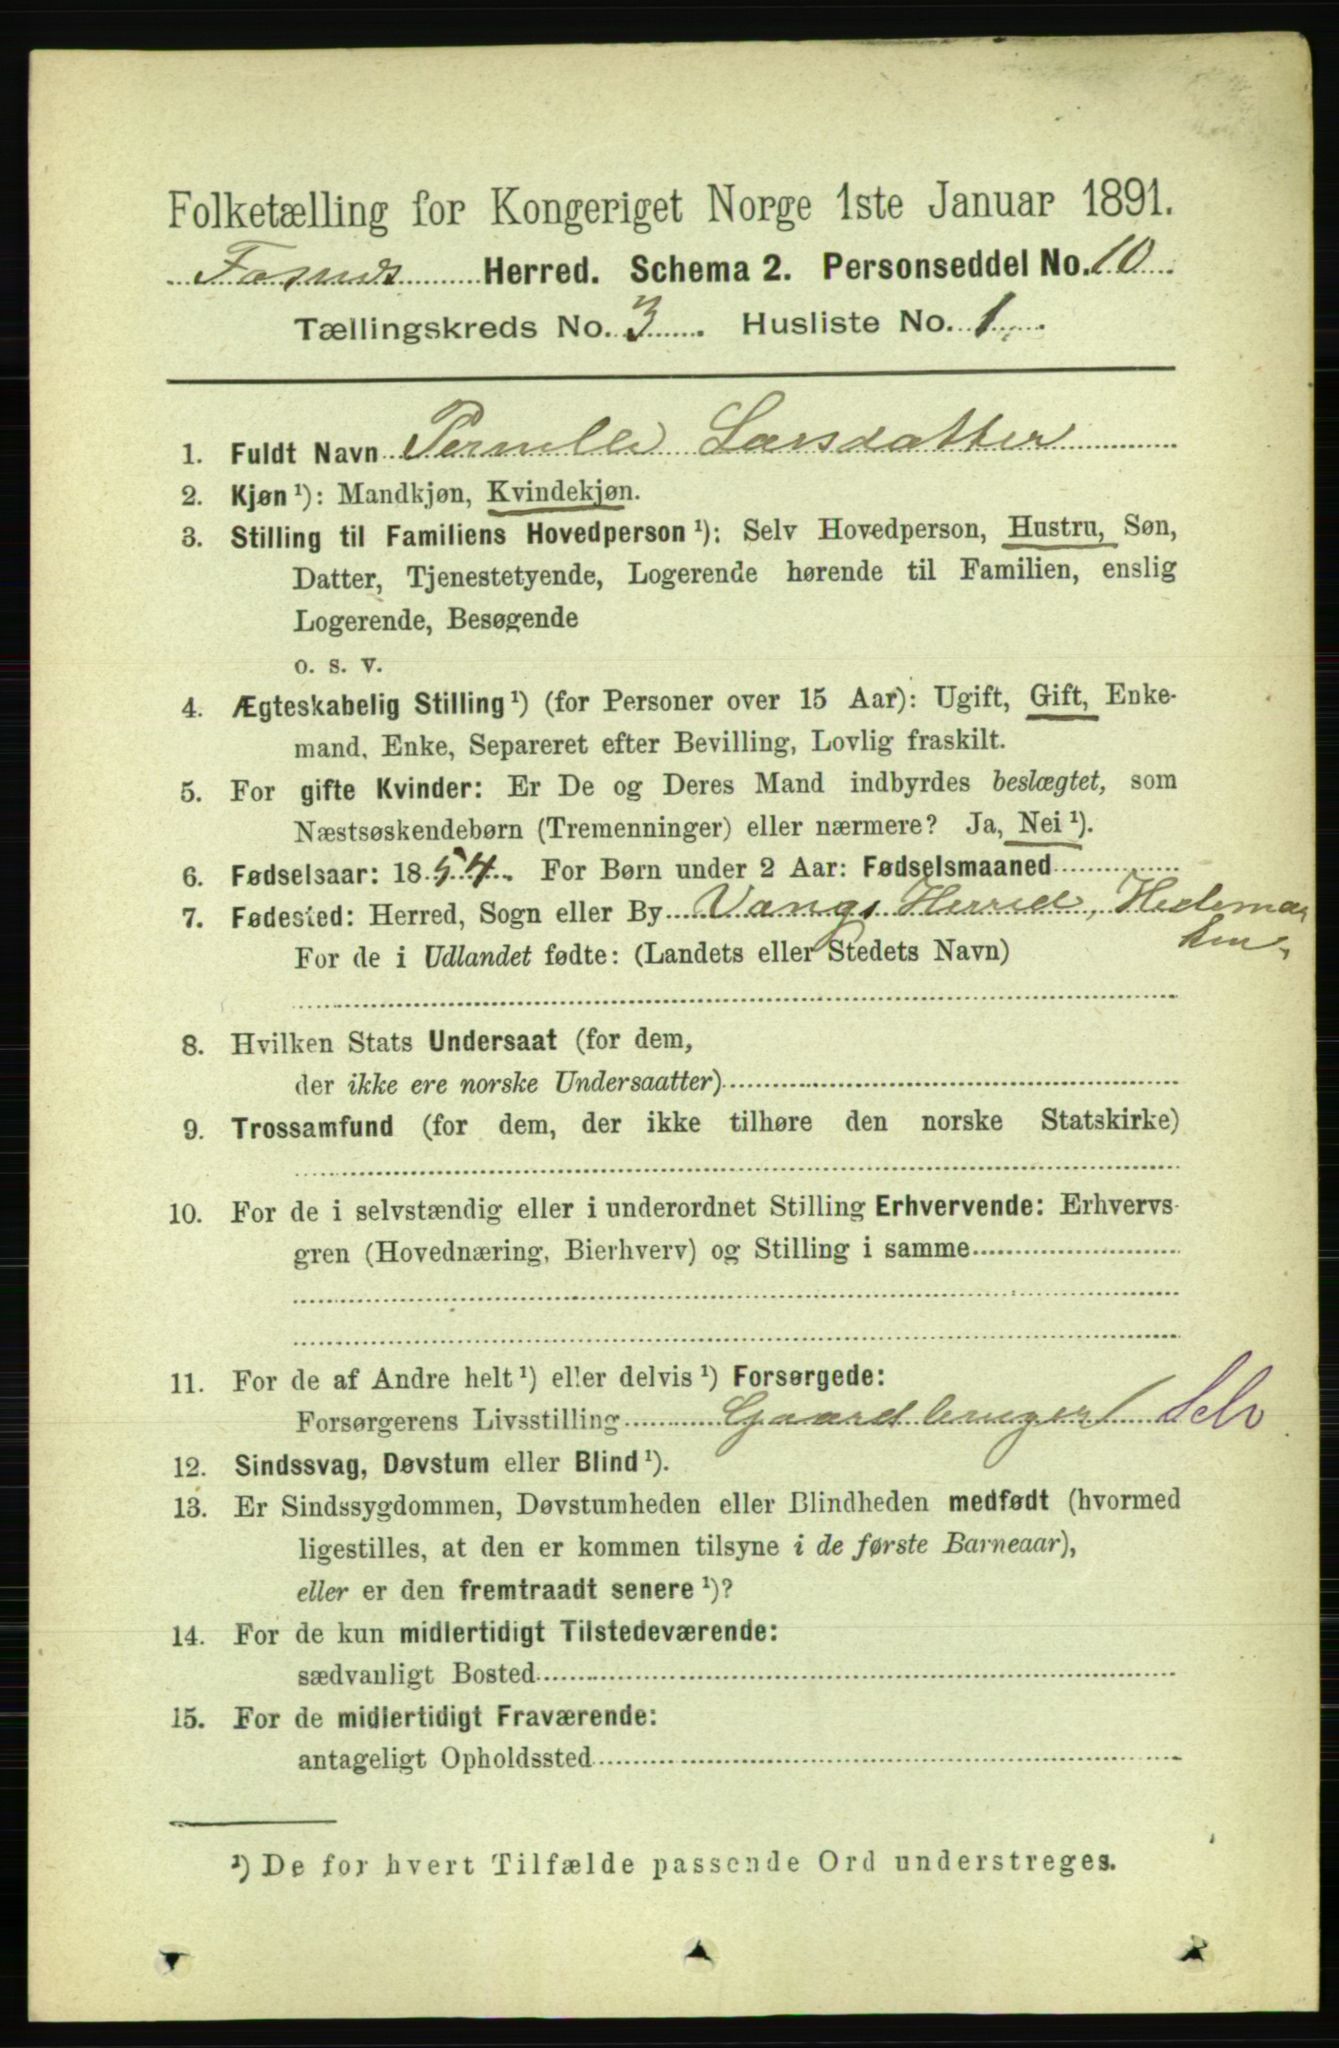 Folketælling for Kongeriget Norge 1ste Januar 1891.
Herred. Schema 2. Personseddel No. 10
Tællingskreds No. 3. Husliste No. 1.
1. Fuldt Navn Pernille Larsdatter
2. Kjøn ¹): Mandkjøn, Kvindekjøn.
3. Stilling til Familiens Hovedperson ¹): Selv Hovedperson, Hustru, Søn,
Datter, Tjenestetyende, Logerende hørende til Familien, enslig
Logerende, Besøgende
o. s. v.
4. Ægteskabelig Stilling ¹) (for Personer over 15 Aar): Ugift, Gift, Enke-
mand, Enke, Separeret efter Bevilling, Lovlig fraskilt.
5. For gifte Kvinder: Er De og Deres Mand indbyrdes beslægtet, som
Næstsøskendebørn (Tremenninger) eller nærmere? Ja, Nei ¹).
6. Fødselsaar: 1854. For Børn under 2 Aar: Fødselsmaaned
7. Fødested: Herred, Sogn eller By Vangs Herred, Hedemar
ken,
For de i Udlandet fødte: (Landets eller Stedets Navn)
8. Hvilken Stats Undersaat (for dem,
der ikke ere norske Undersaatter)
9. Trossamfund (for dem, der ikke tilhøre den norske Statskirke)
10. For de i selvstændig eller i underordnet Stilling Erhvervende: Erhvervs-
gren (Hovednæring, Bierhverv) og Stilling i samme
11. For de af Andre helt ¹) eller delvis ¹) Forsørgede:
Forsørgerens Livsstilling Gaardbruger / Selv
12. Sindssvag, Døvstum eller Blind ¹).
13. Er Sindssygdommen, Døvstumheden eller Blindheden medfødt (hvormed
ligestilles, at den er kommen tilsyne i de første Barneaar),
eller er den fremtraadt senere ¹)?
14. For de kun midlertidigt Tilstedeværende:
sædvanligt Bosted
15. For de midlertidigt Fraværende:
antageligt Opholdssted
¹) De for hvert Tilfælde passende Ord understreges.